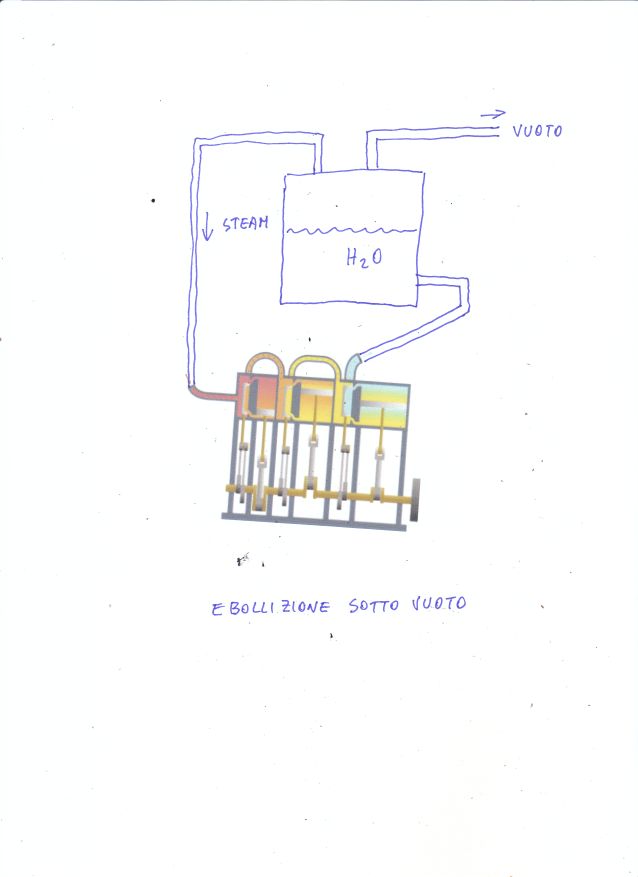 VUOTO
STEAM
H2O
EBOLLIZIONE SOTTO VUOTO